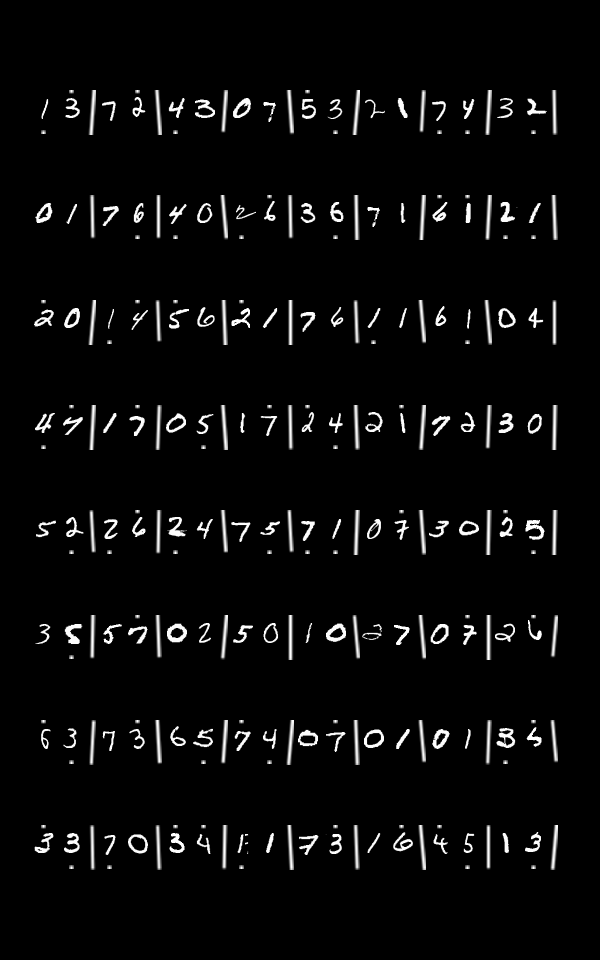 1 3 | 7 2 | 4 3 | 0 7 | 5 3 | 2 1 | 7 4 | 3 2 |
0 1 | 7 6 | 4 0 | 2 6 | 3 6 | 7 1 | 6 1 | 2 1 |
2 0 | 1 4 | 5 6 | 2 1 | 7 6 | 1 1 | 6 1 | 0 4 |
4 7 | 1 7 | 0 5 | 1 7 | 2 4 | 2 1 | 7 2 | 3 0 |
5 2 | 2 6 | 2 4 | 7 5 | 7 1 | 0 7 | 3 0 | 2 5 |
3 5 | 5 7 | 0 2 | 5 0 | 1 0 | 2 7 | 0 7 | 2 6 |
6 3 | 7 3 | 6 5 | 7 4 | 0 7 | 0 1 | 0 1 | 3 5 |
3 3 | 7 0 | 3 4 | 1 1 | 7 3 | 1 6 | 4 5 | 1 3 |